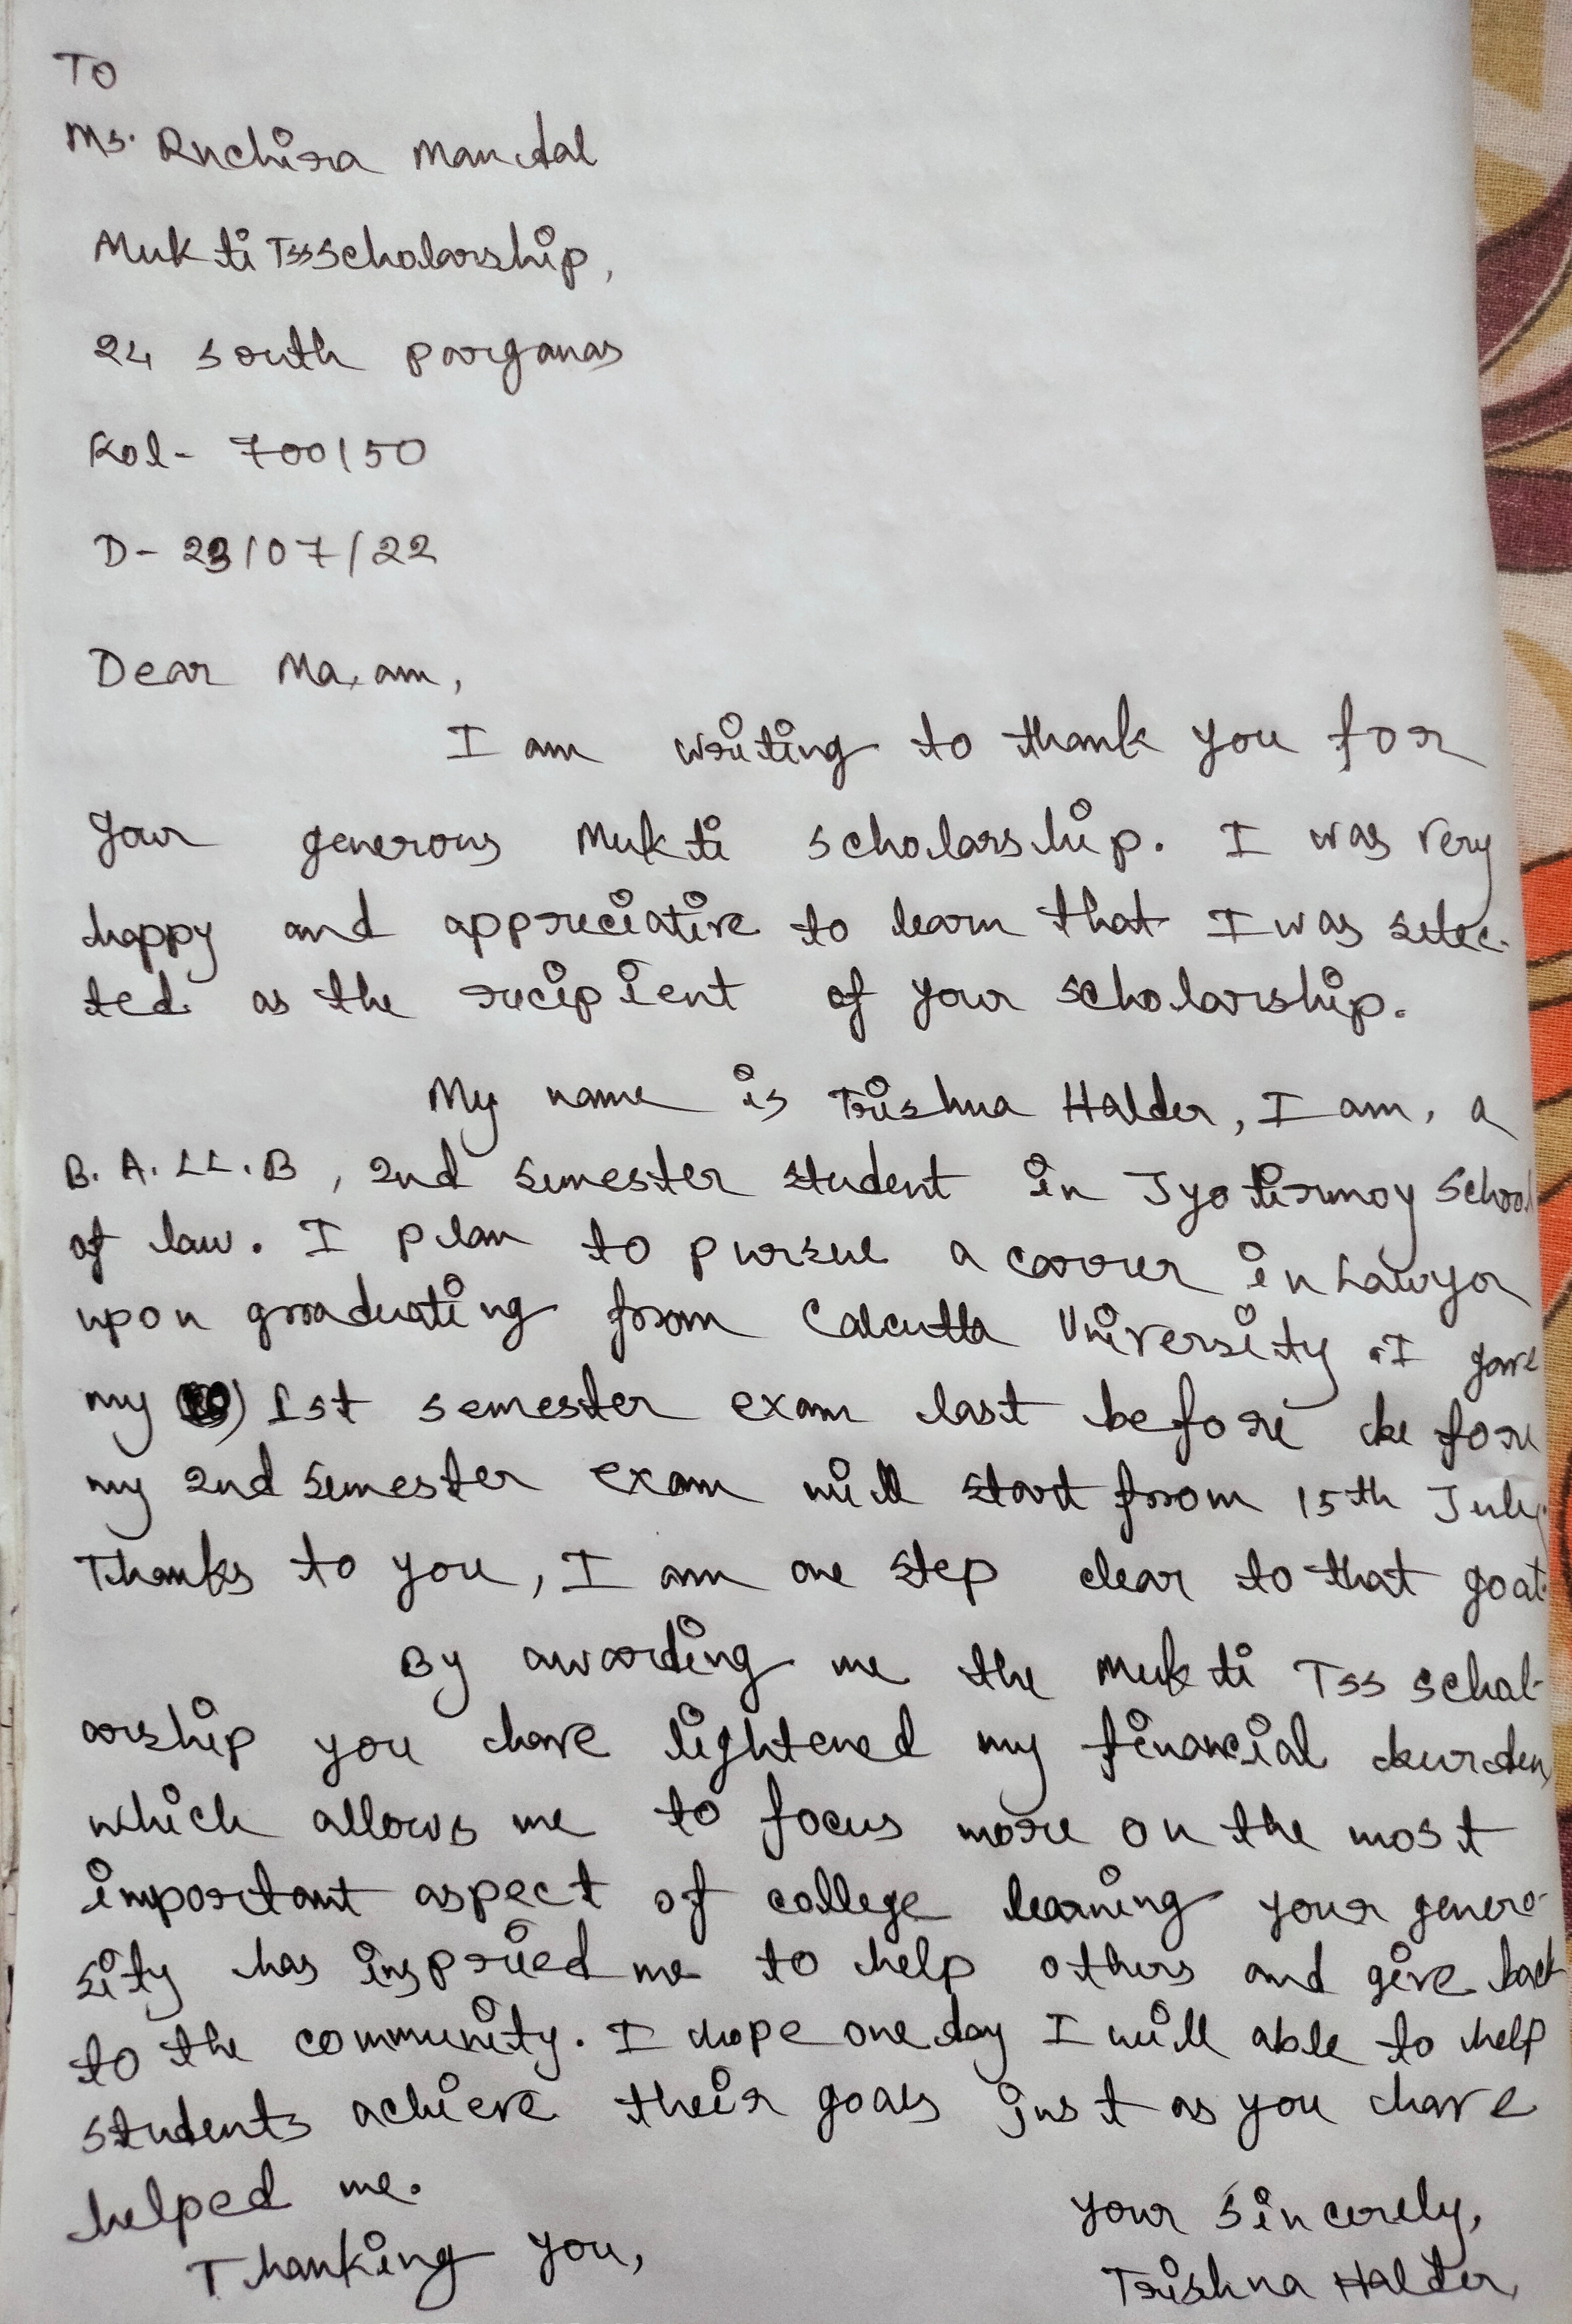 To
Ms. Ruchira Mandal
Mukti Tss Scholarship,
24 South parganas
Kol- 700150
D- 23/07/22
Dear Ma,am,
I am writing to thank you for
your generous Mukti scholarship. I was very
happy and appreciative to learn that I was selec-
ted as the recipient of your scholarship.
My name is Trishna Halder, I am, a
B.A.LL.B, 2nd semester student in Jyotirmoy School
of law. I plan to pursue a carrer in Lawyor
upon graduating from Calcutta University. I gave
my 1st semester exam last before before
my 2nd semester exam will start from 15th July
Thanks to you, I am one step clear to that goal.
By awarding me the Mukti Tss schol-
arship you have lightened my financial burden,
which allows me to focus more on the most
important aspect of college learning your genero-
sity has inspried me to help others and give back
to the community. I hope one day I will able to help
students achieve their goals just as you have
helped me.
Thanking you,
Your Sincerely,
Trishna Halder,